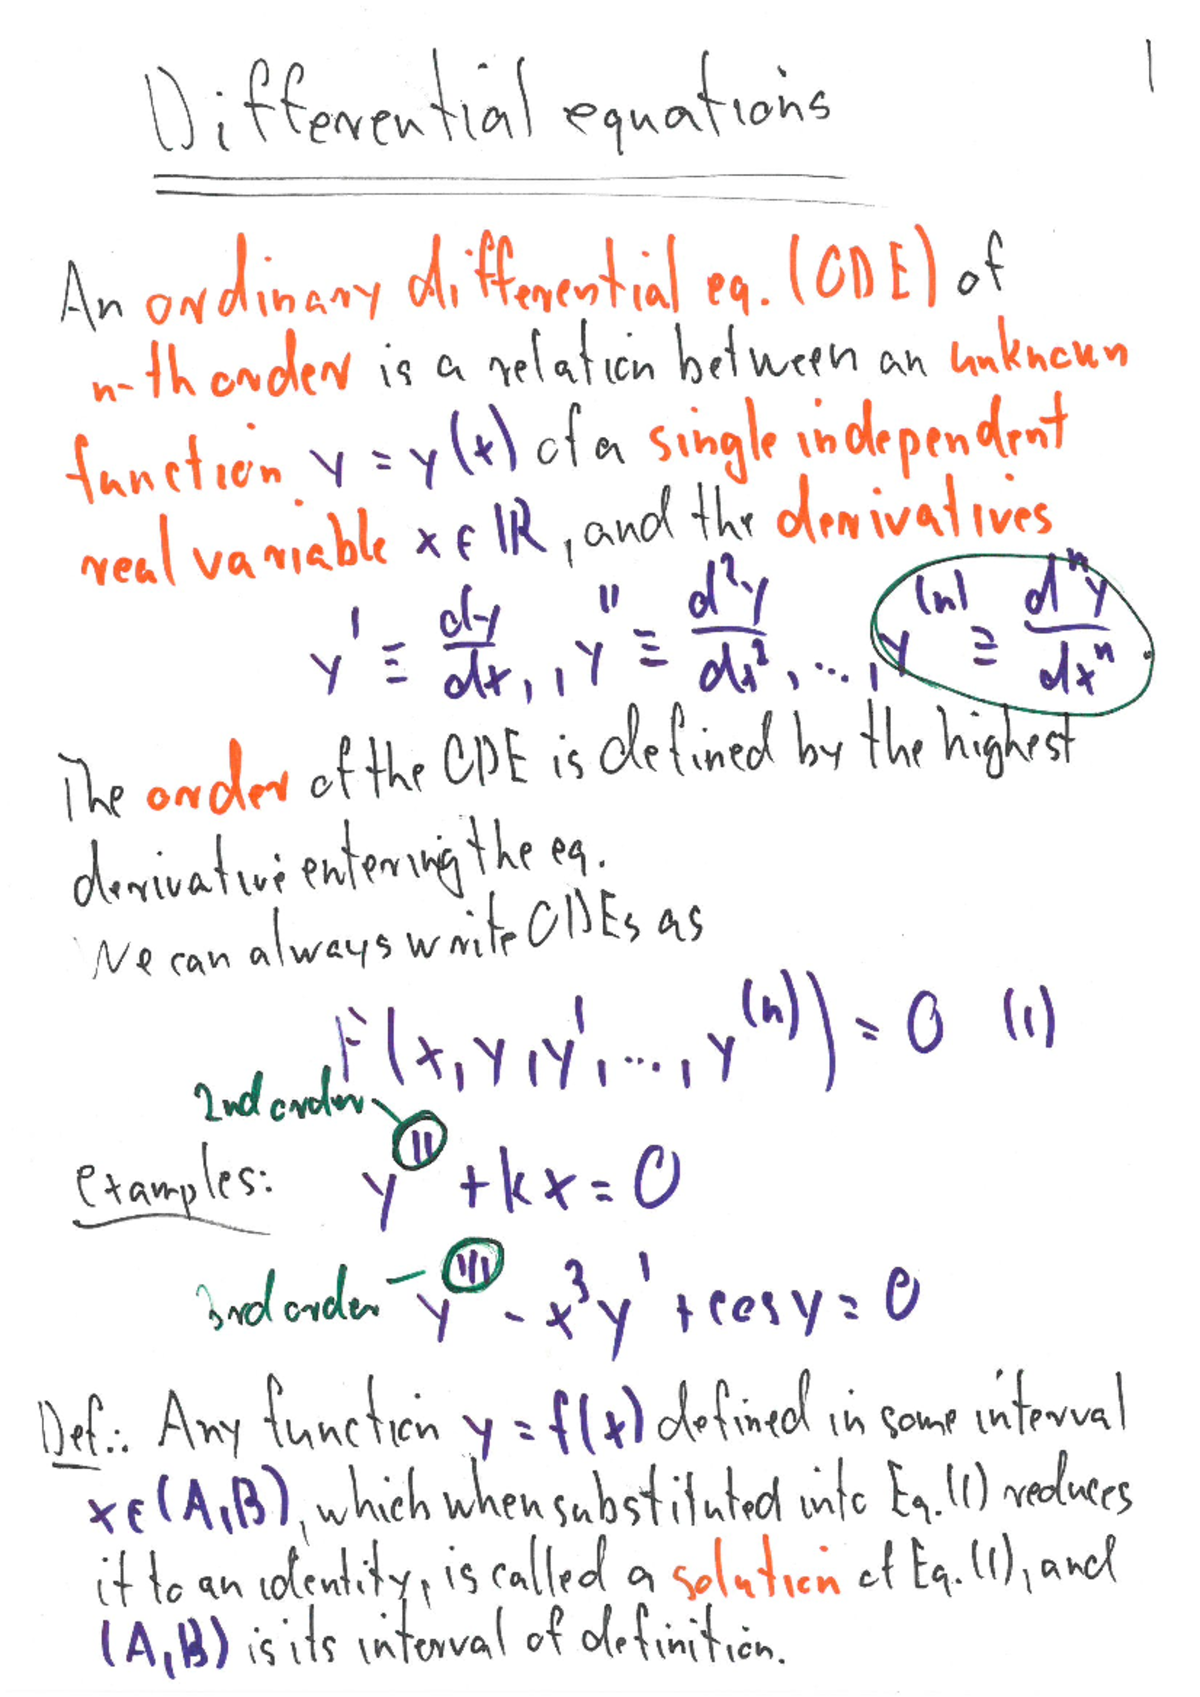 1
Differential equations
An ordinary differential eq. (ODE) of
n-th order is a relation between an unknown
function y = y(x) of a single independent
real variable x ∈ ℝ, and the derivatives
y' ≡ dy/dx, , y'' ≡ d²y/dx², ..., y⁽ⁿ⁾ ≡ dⁿy/dxⁿ
The order of the ODE is defined by the highest
derivative entering the eq.
We can always write ODEs as
F(x, y, y', ..., y⁽ⁿ⁾) = 0 (1)
2nd order
examples: y'' + kx = 0
3rd order – y''' - x³y' + cos y = 0
Def.: Any function y = f(x) defined in some interval
x ∈ (A, B), which when substituted into Eq. (1) reduces
it to an identity, is called a solution of Eq. (1), and
(A, B) is its interval of definition.